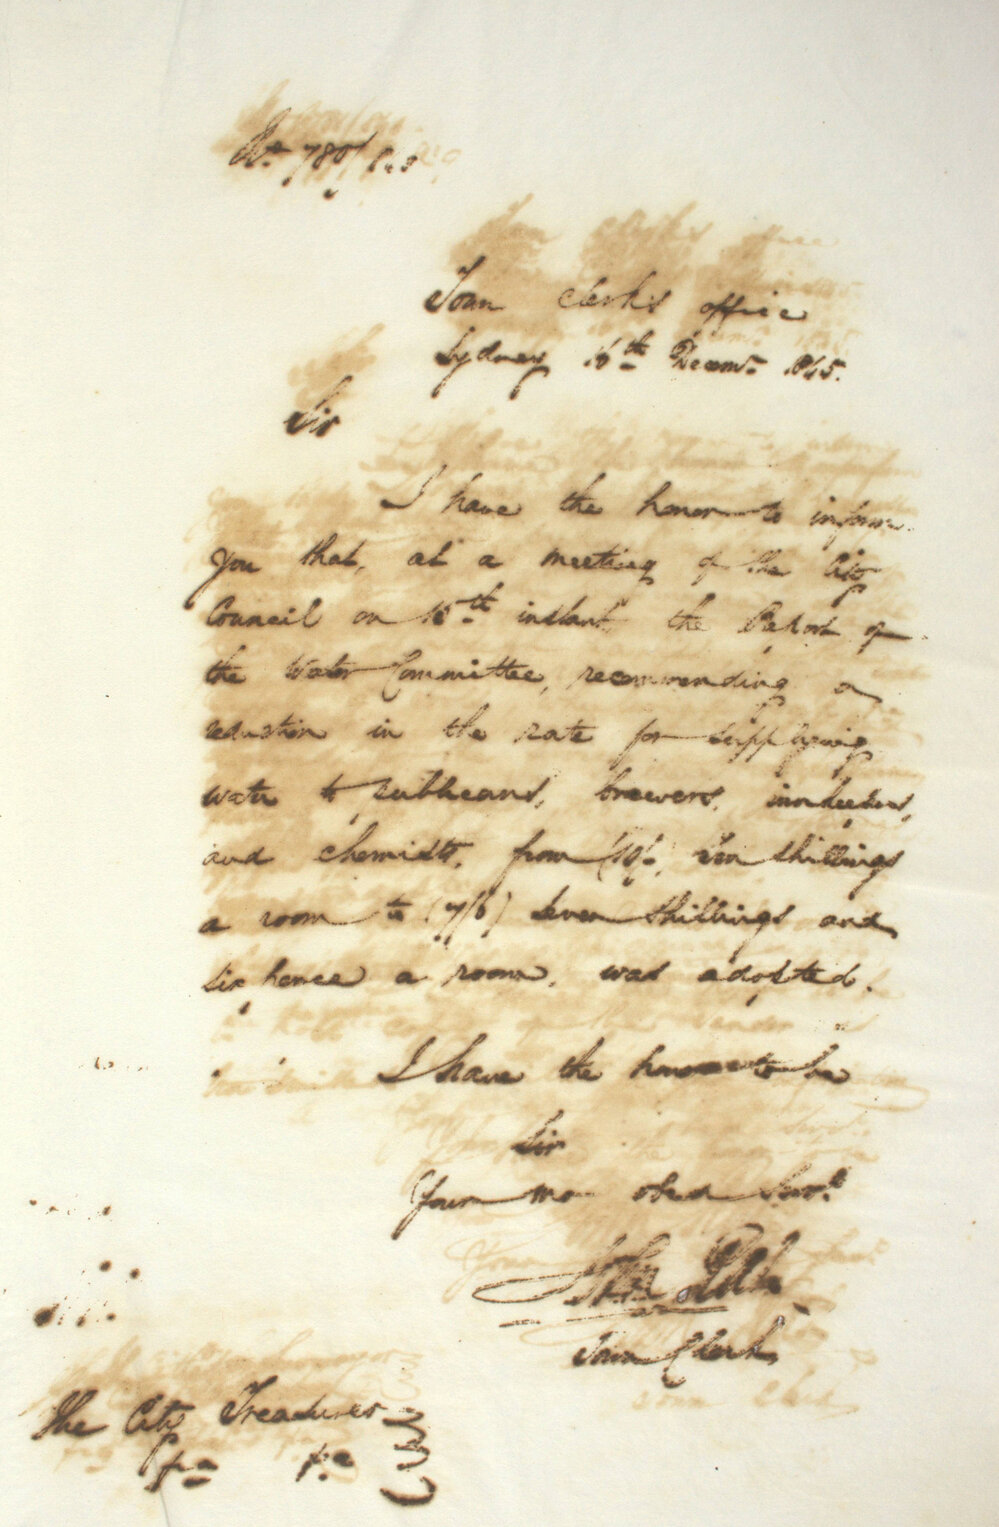 No. 780/
Town Clerk's Office
Sydney 16th Decemr. 1845.
Sir
I have the honor to inform
you that, at a meeting of the City
Council on instant the Report of
the Water Committee, recommending a
reduction in the rate for supplying
water to publicans, brewers, innkeepers,
and chemists, from (10/-) Ten shillings
a room to (7/6) Seven Shillings and
sixpence a room, was adopted.
I have the honor to be
Sir
Your mo obed Servt.
Town Clerk
The City Treasurer
&c &c